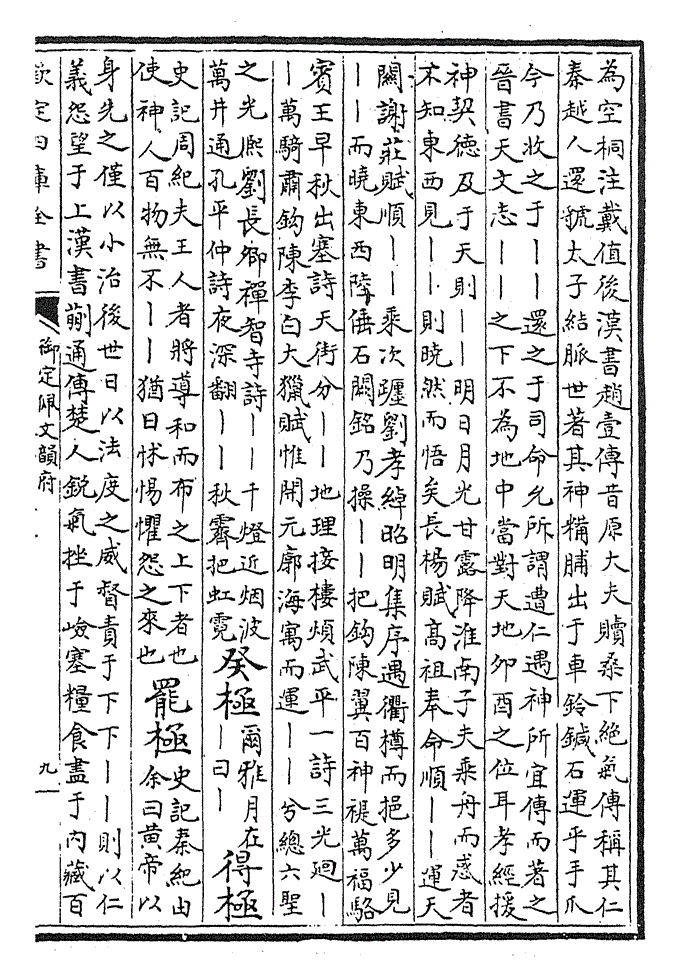 為空桐注戴值後漢書趙壹傳昔原大夫贖桑下絕氣傳稱其仁
秦越人還虢太子結脈世著其神糒脯出于車鈴鍼石運乎手爪
今乃收之于丨丨還之于司命允所謂遭仁遇神所宜傳而著之
晉書天文志丨丨之下不為地中當對天地卯酉之位耳孝經援
神契德及于天則丨丨明日月光甘露降淮南子夫乘舟而惑者
不知東西見丨丨則曉然而悟矣長楊賦高祖奉命順丨丨運天
關謝莊賦順丨丨乘次躔劉孝綽昭明集序遇衢樽而挹多少見
丨丨而曉東西陸倕石闕銘乃操丨丨把鈎陳翼百神禔萬福駱
賓王早秋出塞詩天街分丨丨地理接樓煩武平一詩三光迴丨
丨萬騎肅鈎陳李白大獵賦惟開元廓海寓而運丨丨兮總六聖
之光熈劉長卿禪智寺詩丨丨千燈近烟波
萬井通孔平仲詩夜深翻丨丨秋霽把虹霓
癸極
爾雅月在
丨曰丨
得極
史記周紀夫王人者將導和而布之上下者也
使神人百物無不丨丨猶曰怵惕懼怨之來也
罷極
史記秦紀由
余曰黃帝以
身先之僅以小治後世日以法度之威督責于下下丨丨則以仁
義怨望于上漢書蒯通傳楚人銳氣挫于嶮塞糧食盡于內藏百
欽定四庫全書
御定佩文韻府
九